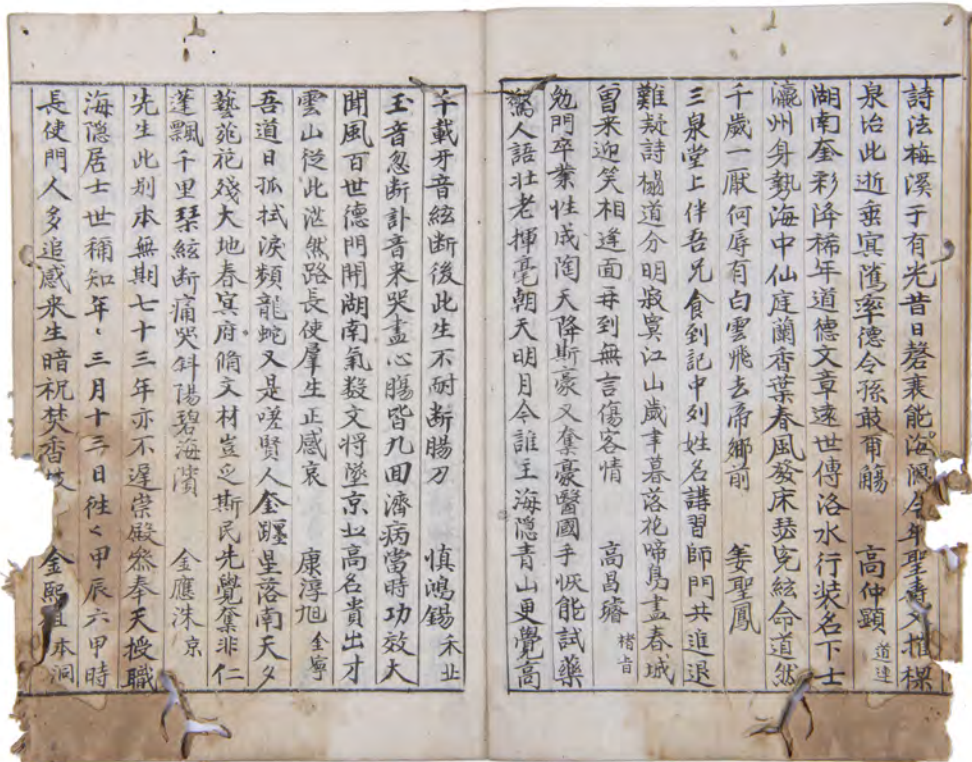 詩法梅溪于有光昔日磬襄能海隱今年聖壽又摧樑
泉怡此逝乘寅鴈率德令孫敢甭觴 高仲顕 道建
湖南奎彩降稀年道德文章遠世傳洛水行装名下士
瀛州身勢海中仙庭蘭香葉春風發床瑟寃絃命道然
千歲一厭何辱有白雲飛去帝鄉前 姜聖鳳
三泉堂上伴吾兄食到記中列姓名講習師門共進退
難疑詩榻道分明寂寞江山歲聿暮落花啼鳥盡春城
曽来迎笑相逢面再到無言傷客情 高昌璿 楮旨
勉門卒業性成陶天降斯豪又奪豪醫國手恢能試藥
驚人語壮老揮毫朝天明月今誰主海隱青山更覺高
千載牙音絃断後此生不耐断膓刀 慎鴻錫 禾北
玉音忽断訃音来哭盡心膓皆九回濟病當時功效大
聞風百世德門開湖南氣数文将墜京北高名貴出才
雲山從此浩然路長使羣生正感哀 康淳旭 金寧
吾道日孤拭淚頻龍蛇又是嗟賢人奎躔星落南天夕
藝苑花殘大地春寅府脩文材豈乏斯民先覺奪非仁
蓬飄千里琹絃断痛哭斜陽碧海濱 金應洙 京
先生此别本無期七十三年亦不遲崇殿叅奉天授職
海隱居士世稱知年〻三月十三日徃〻甲辰六甲時
長使門人多追感来生暗祝焚香 金熙 本洞